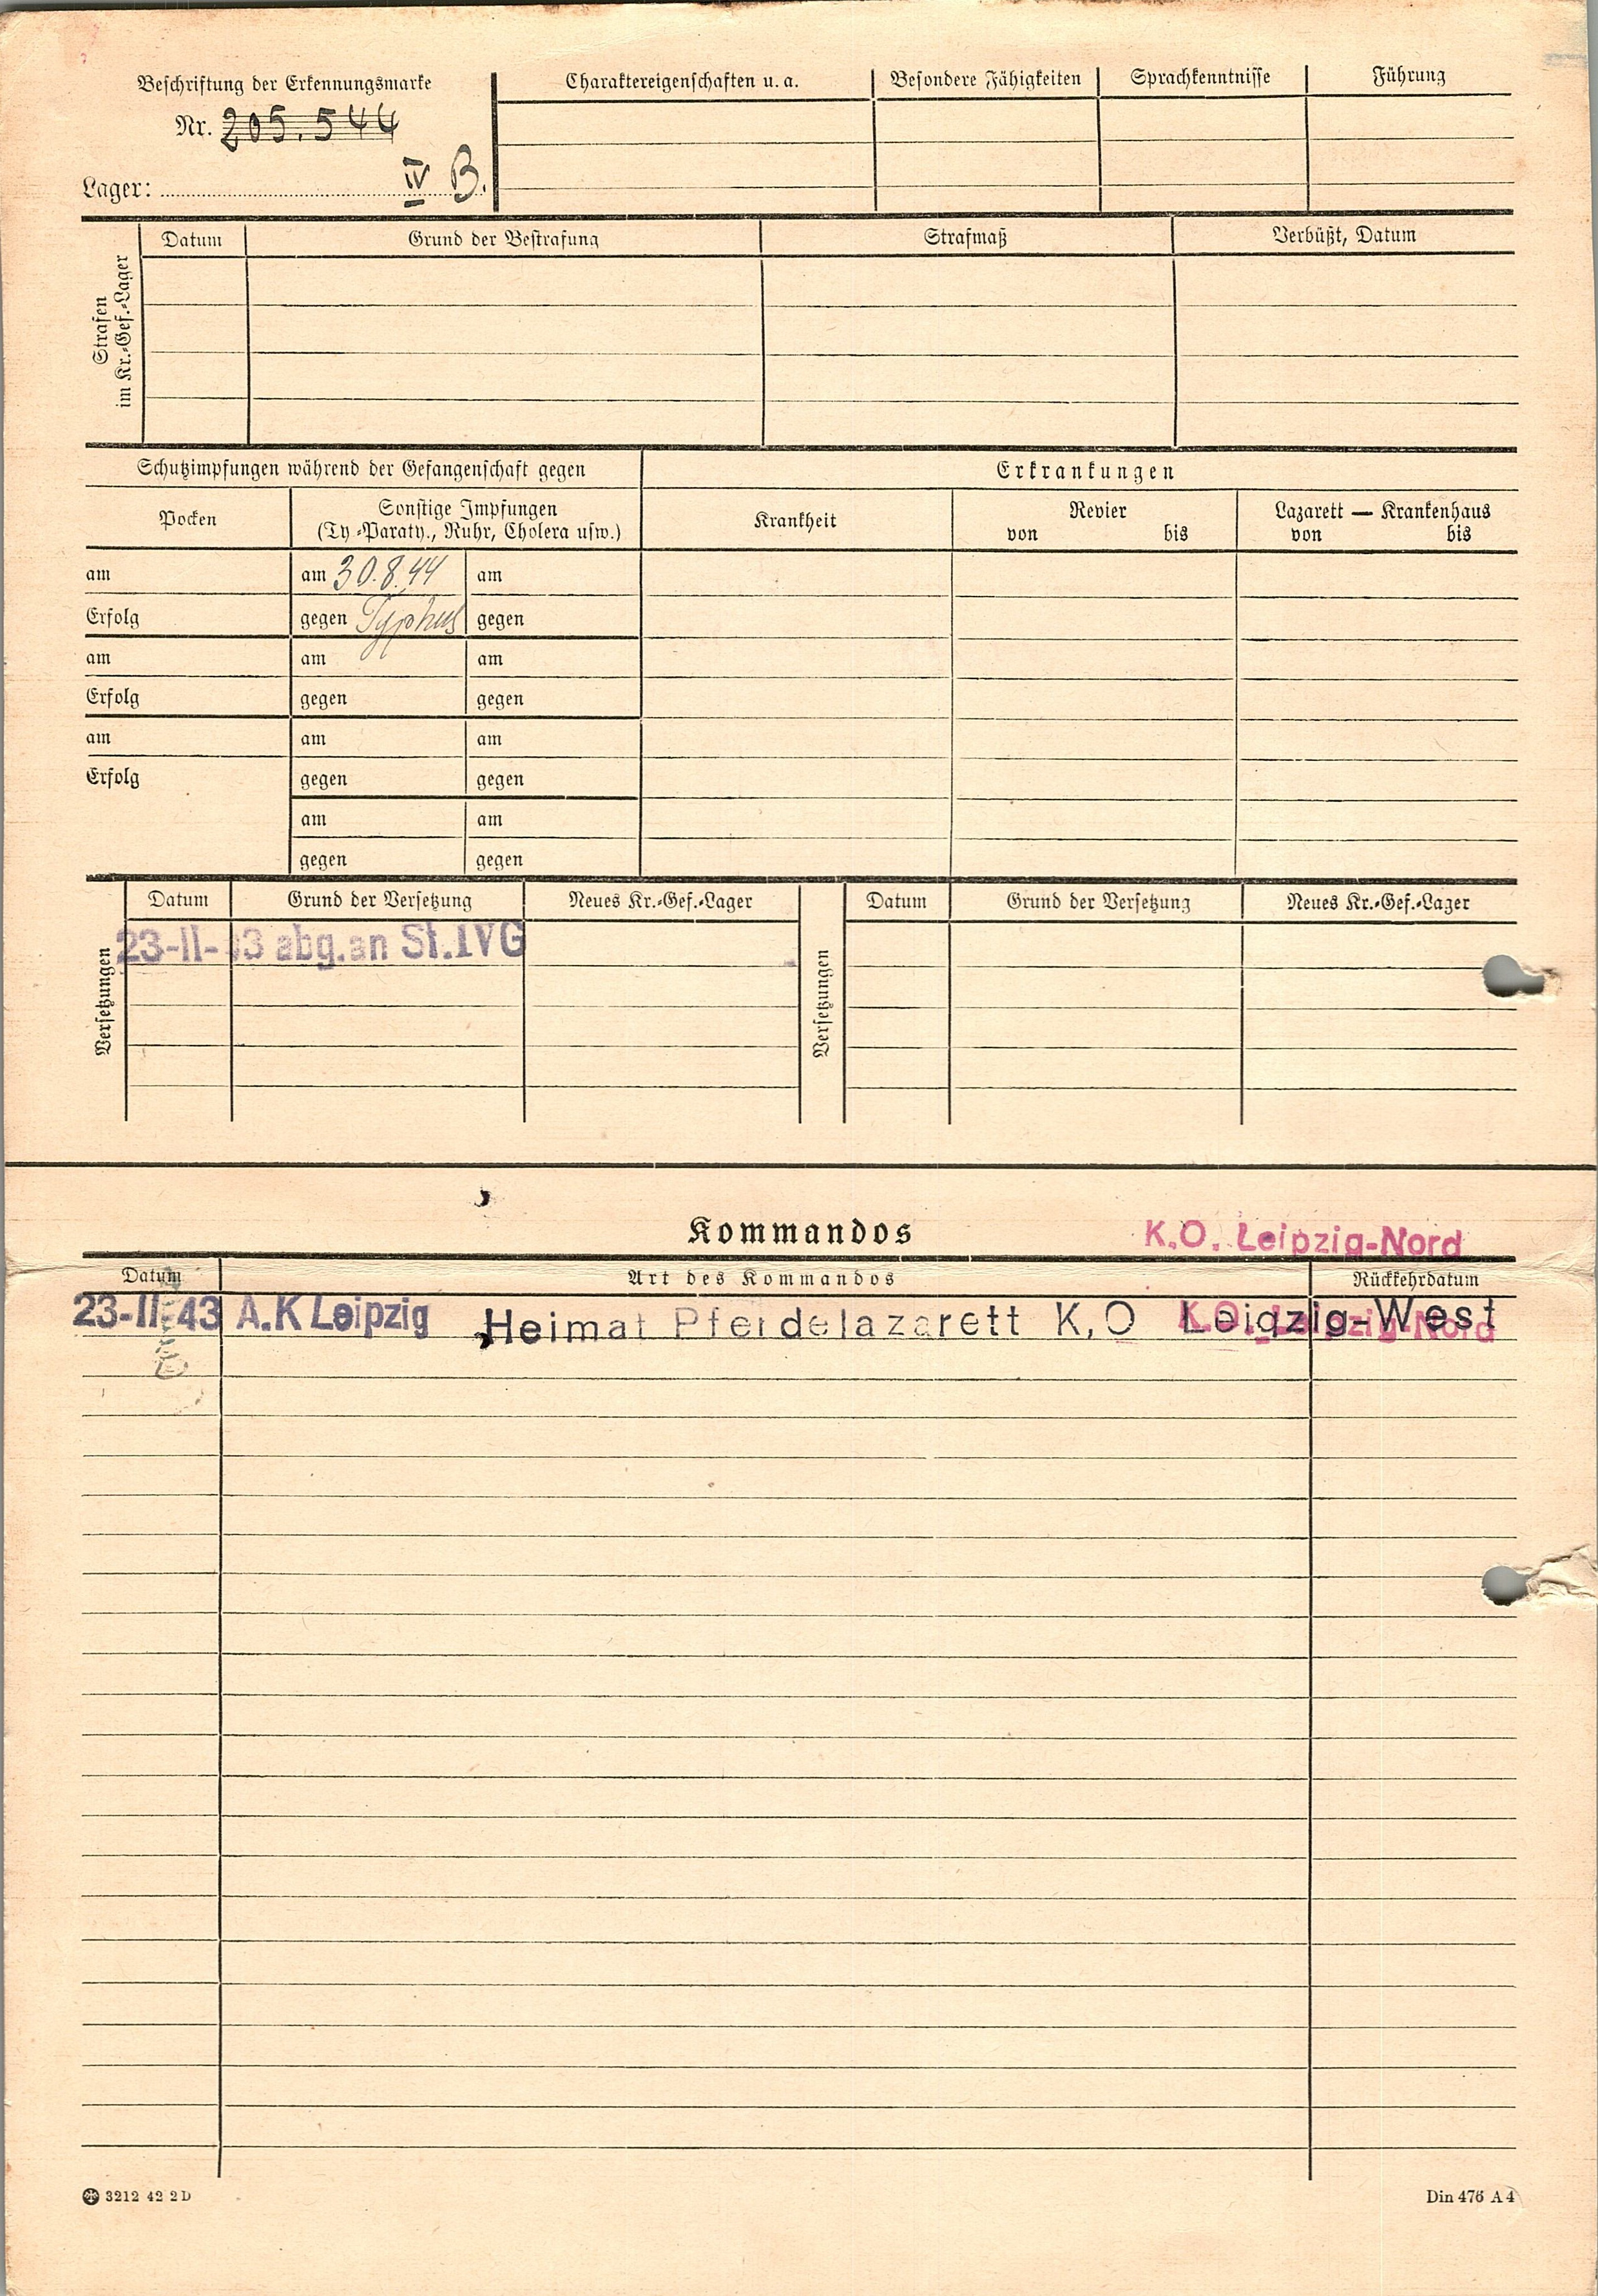 Beschriftung der Erkennungsmarke
Nr. 205.544
Lager: IV B.
Charaktereigenschaften u. a.
Besondere Fähigkeiten
Sprachkenntnisse
Führung
Strafen
im Kr.-Gef.-Lager
Datum
Grund der Bestrafung
Strafmaß
Verbüßt, Datum
Schutzimpfungen während der Gefangenschaft gegen
Erkrankungen
Pocken
Sonstige Impfungen
(Ty-Paraty., Ruhr, Cholera usw.)
Krankheit
Revier
von bis
Lazarett — Krankenhaus
von bis
am am 30.8.44 am
Erfolg gegen Typhus gegen
am am am
Erfolg gegen gegen
am am am
Erfolg gegen gegen
am am
gegen gegen
Versetzungen
Datum Grund der Versetzung Neues Kr.-Gef.-Lager
23-II- 3 abg. an St. IVG
Versetzungen
Datum Grund der Versetzung Neues Kr.-Gef.-Lager
Kommandos
K.O. Leipzig-Nord
Datum Art des Kommandos Rückkehrdatum
23-II-43 A.K Leipzig Heimat Pferdelazarett K,O Leipzig-West
K.O. Leipzig-Nord
3212 42 2 D
Din 476 A 4